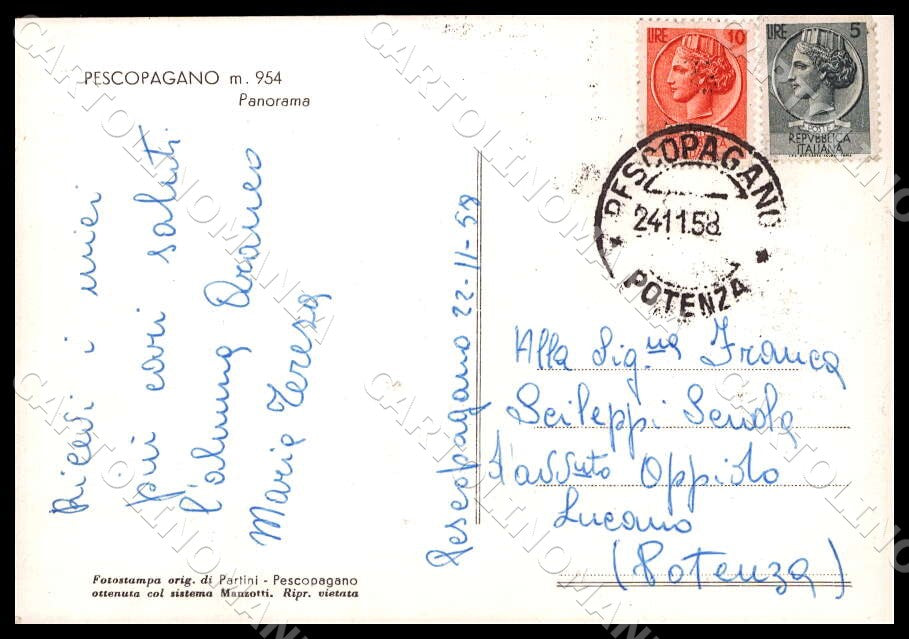 PESCOPAGANO m. 954
Panorama
Ricevi i miei
più cari saluti
l'alunna Araneo
Maria Teresa
Pescopagano 22-11-58
Fotostampa orig. di Partini - Pescopagano
ottenuta col sistema Manzotti. Ripr. vietata
LIRE 10
LIRE 5
POSTE
REPVBBLICA
ITALIANA
PESCOPAGANO
24.11.58
POTENZA
Alla Sig.na Franca
Scileppi Scuola
d'avv.to Oppido
Lucano
(Potenza)
CARTOLINOMANIA